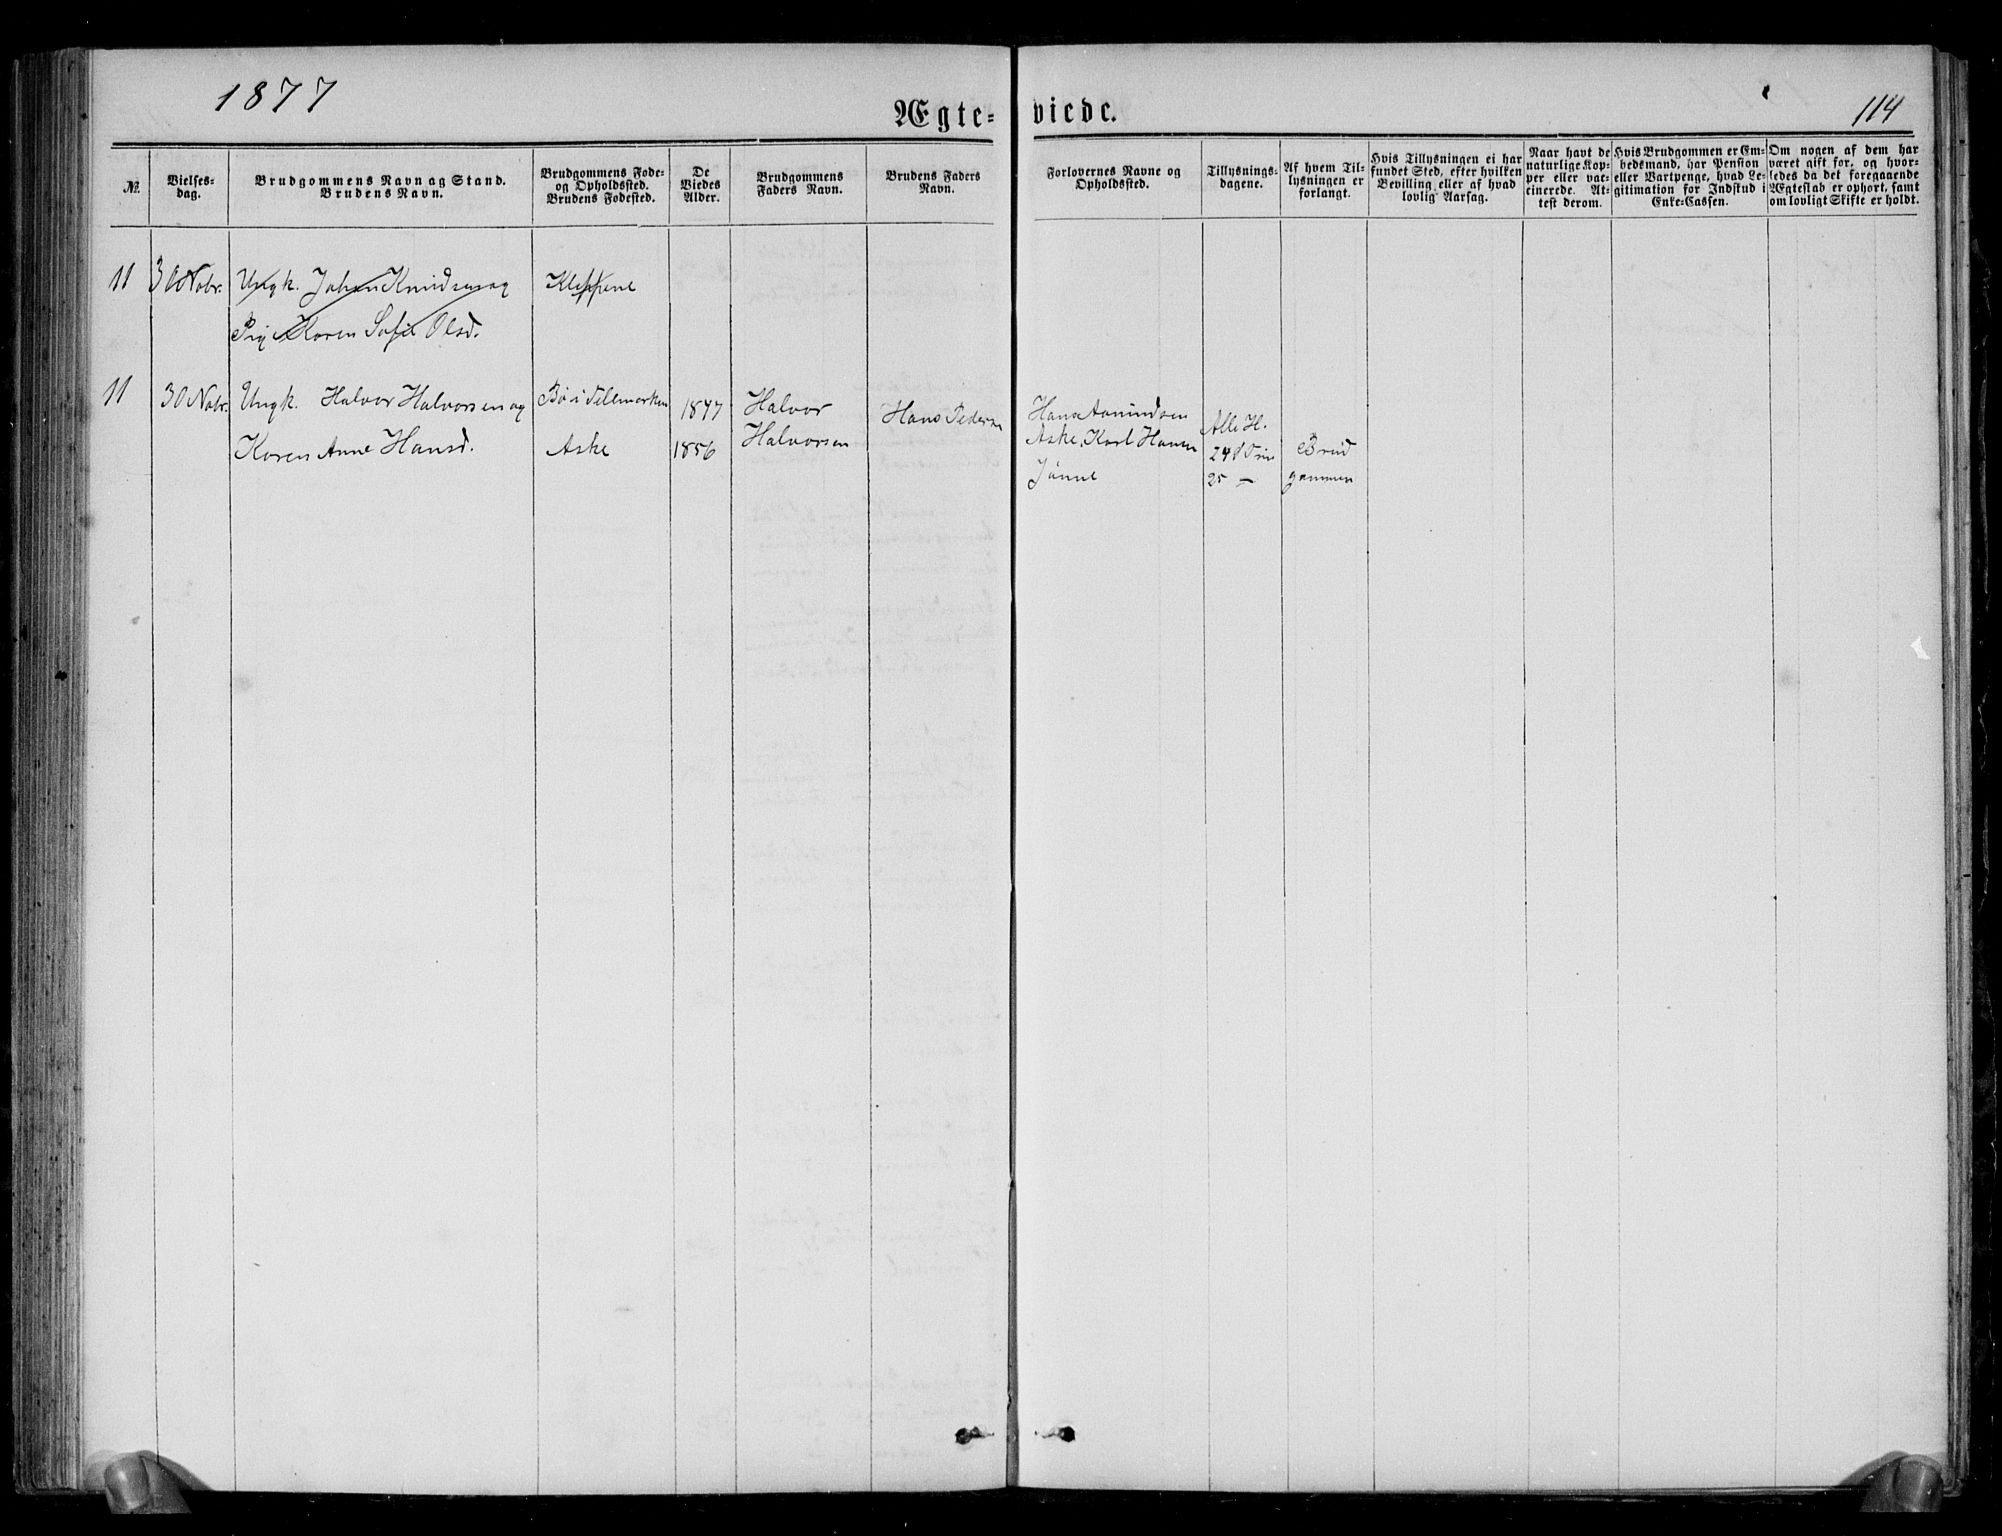 1877
Ægte= viede.
114
№
Vielses=
dag.
Brudgommens Navn og Stand.
Brudens Navn.
Brudgommens Føde=
og Opholdssted.
Brudens Fødested.
De
Viedes
Alder.
Brudgommens
Faders Navn.
Brudens Faders
Navn.
Forlovernes Navne og
Opholdssted.
Tillysnings=
dagene.
Af hvem Til=
lysningen er
forlangt.
Hvis Tillysningen ei har
fundet Sted, efter hvilken
Bevilling eller af hvad
lovlig Aarsag.
Naar havt de
naturlige Kop=
per eller vac=
cinerede. At=
test derom.
Hvis Brudgommen er Em=
bedsmand, har Pension
eller Vartpenge, hvad Le=
gitimation for Indskud i
Enke=Cassen.
Om nogen af dem har
været gift før, og hvor=
ledes da det foregaaende
Ægteskab er ophørt, samt
om lovligt Skifte er holdt.
11 30 Nobr. Ungk. Johan Knudsen og Kleppene
Pig Karen Sofie Olsd.
11 30 Nobr. Ungk. Halvor Halvorsen og Bø i Tellemarken 1847 Halvor Hans Peders
Karen Anne Hansd. Aske 1856 Halvorsen
Hans Amundsen
Aske, Karl Hansen
Jønne
Alle H.
24 S Trin
25 —
Brud
gommen